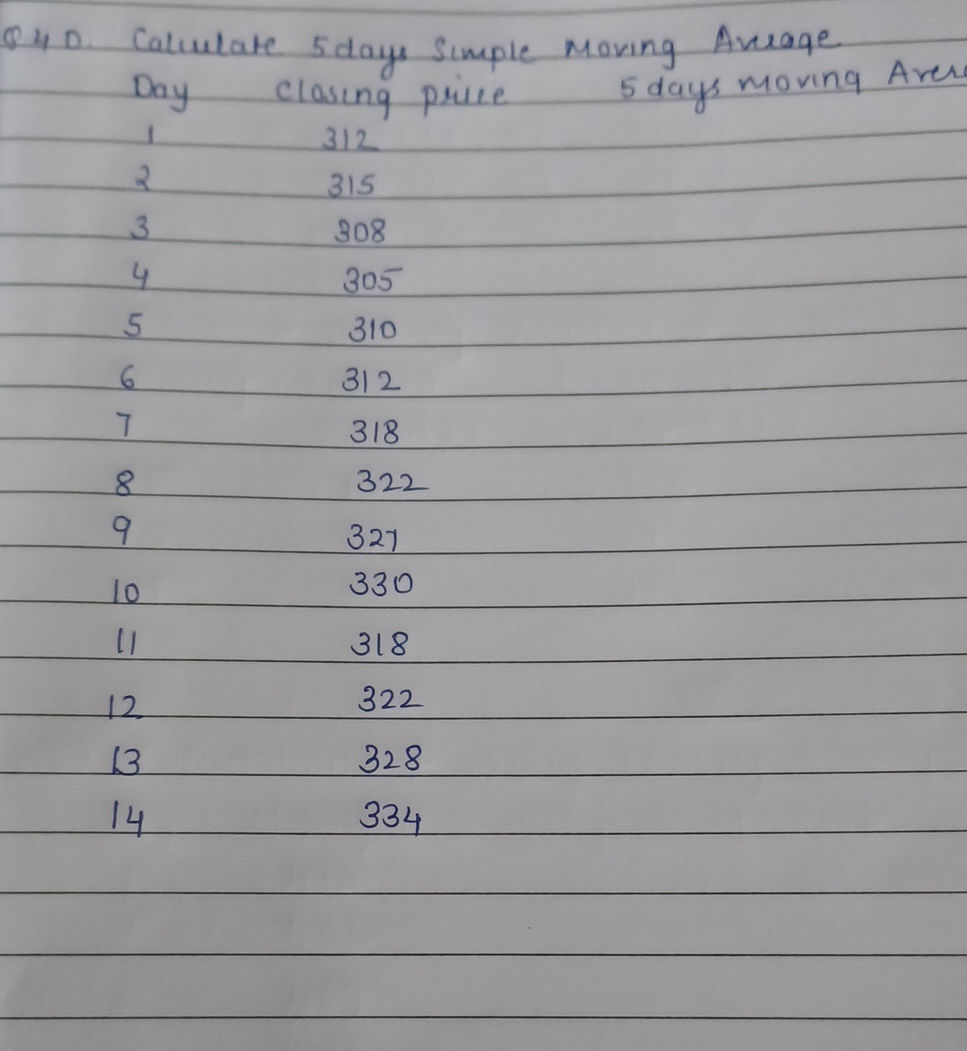 Q40. Calculate 5days Simple Moving Average
Day Closing price 5days moving Aver
1 312
2 315
3 308
4 305
5 310
6 312
7 318
8 322
9 327
10 330
11 318
12 322
13 328
14 334